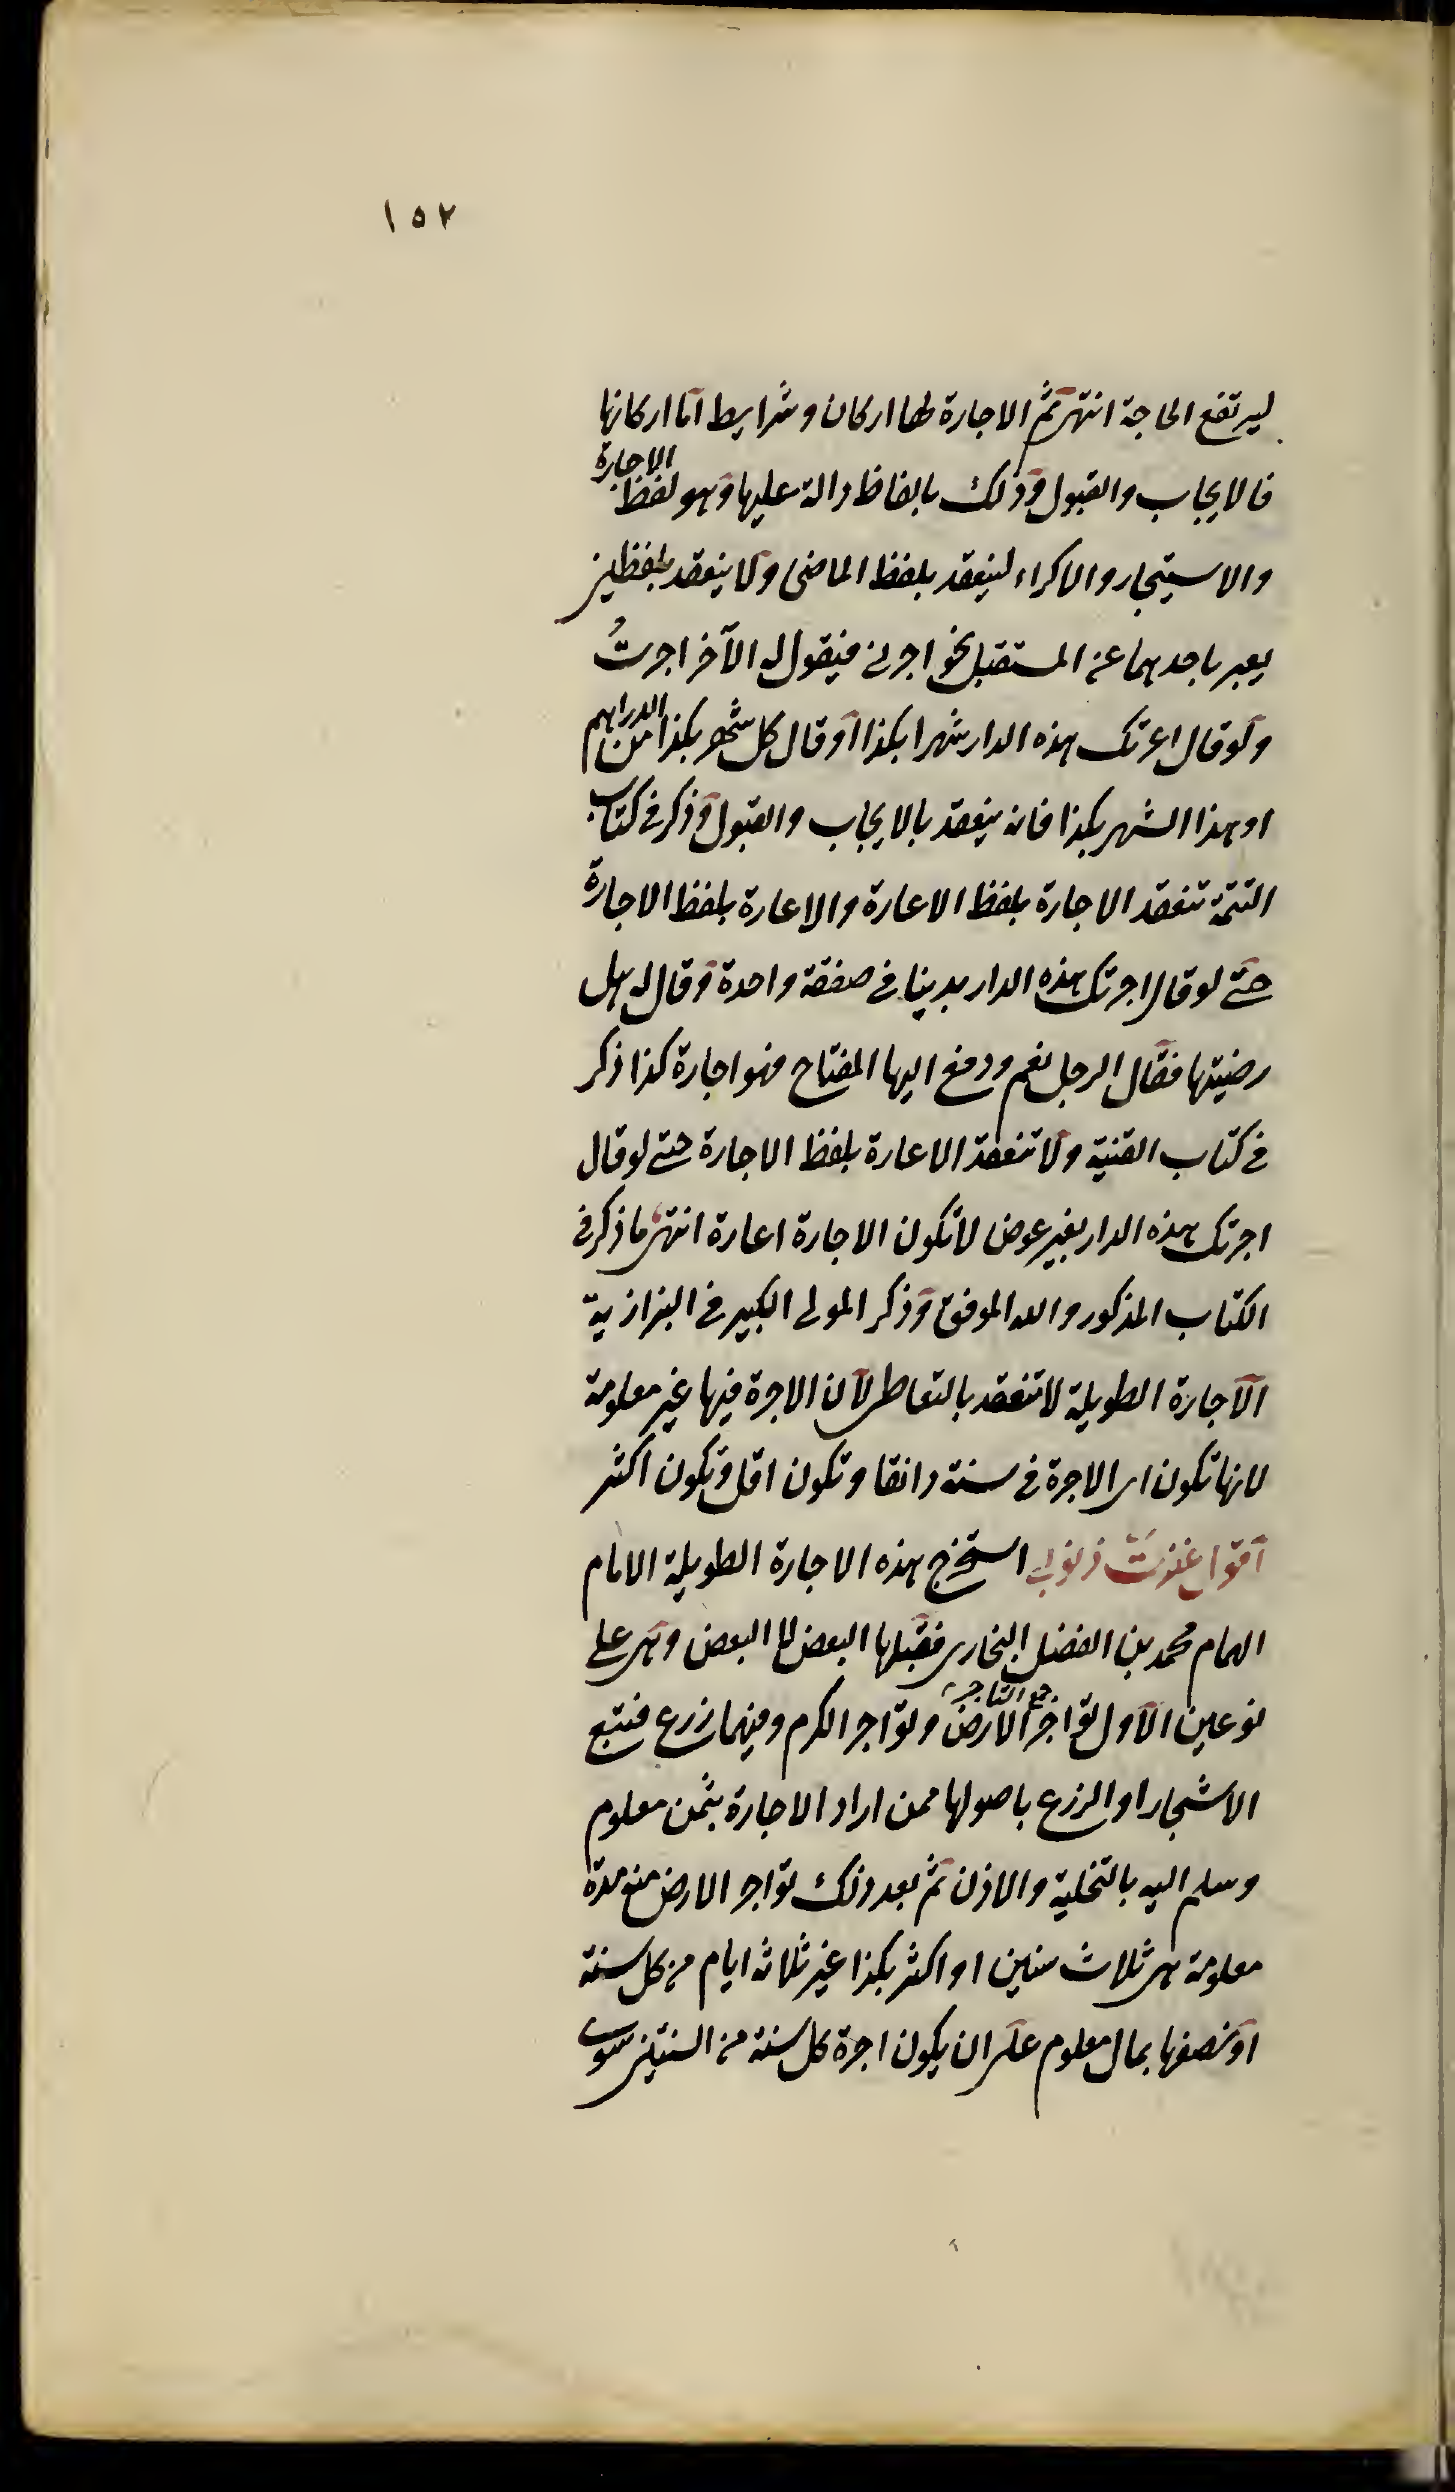 ١٥٢
ليرتفع الحاجة انتهى ثم الاجارة لها اركان وشرايط اما اركانها
فالايجاب والقبول وذلك بالفاظ دالة عليها وهو لفظ الاجارة
والاستيجار والاكراء لينعقد بلفظ الماضى ولا ينعقد بلفظين
يعبر باحدهما عن المستقبل نحو اجرنى فيقول له الآخر اجرتُ
ولو قال اعرتك هذه الدار شهرا بكذا او قال كل شهر بكذا من الدراهم
او هذا الشهر بكذا فانه ينعقد بالايجاب والقبول وذكر فى كتاب
التتمة تنعقد الاجارة بلفظ الاعارة والاعارة بلفظ الاجارة
حتى لو قال اجرتك هذه الدار بدينا فى صفقة واحدة وقال له هل
رضيتها فقال الرجل نعم ودفع اليها المفتاح فهو اجارة كذا ذكر
فى كتاب القنية ولا تنعقد الاعارة بلفظ الاجارة حتى لو قال
اجرتك هذه الدار بغير عوض لا تكون الاجارة اعارة انتهى ما ذكر فى
الكتاب المذكور والله الموفق وذكر المولى الكبير فى البزازية
الاجارة الطويلة لا تنعقد بالتعاطى لان الاجرة فيها غير معلومة
لانها تكون اى الاجرة فى سنة دانقا وتكون اقل وتكون اكثر
اقول غفرت ذنوبى استخرج هذه الاجارة الطويلة الامام
الهمام محمد بن الفضل البخارى فقبلها البعض لا البعض وهى على
نوعين الاول تؤاجر الارض وتؤاجر الكرم وفيهما زرع فتبع
الاشجار او الزرع باصولها ممن اراد الاجارة بثمن معلوم
وسلم اليه بالتخلية والاذن ثم بعد ذلك تؤاجر الارض منه مدة
معلومة هى ثلاث سنين او اكثر بكذا غير ثلاثة ايام من كل سنة
او نصفها بمال معلوم على ان يكون اجرة كل سنة من السنتين سوى